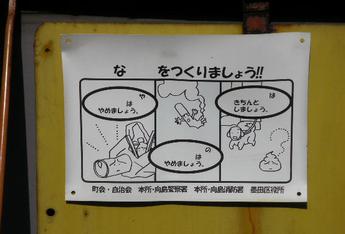 な　　をつくりましょう!!
や
は
やめましょう。
の
は
やめましょう。
は
きちんと
しましょう。
町会・自治会　本所・向島警察署　本所・向島消防署　墨田区役所